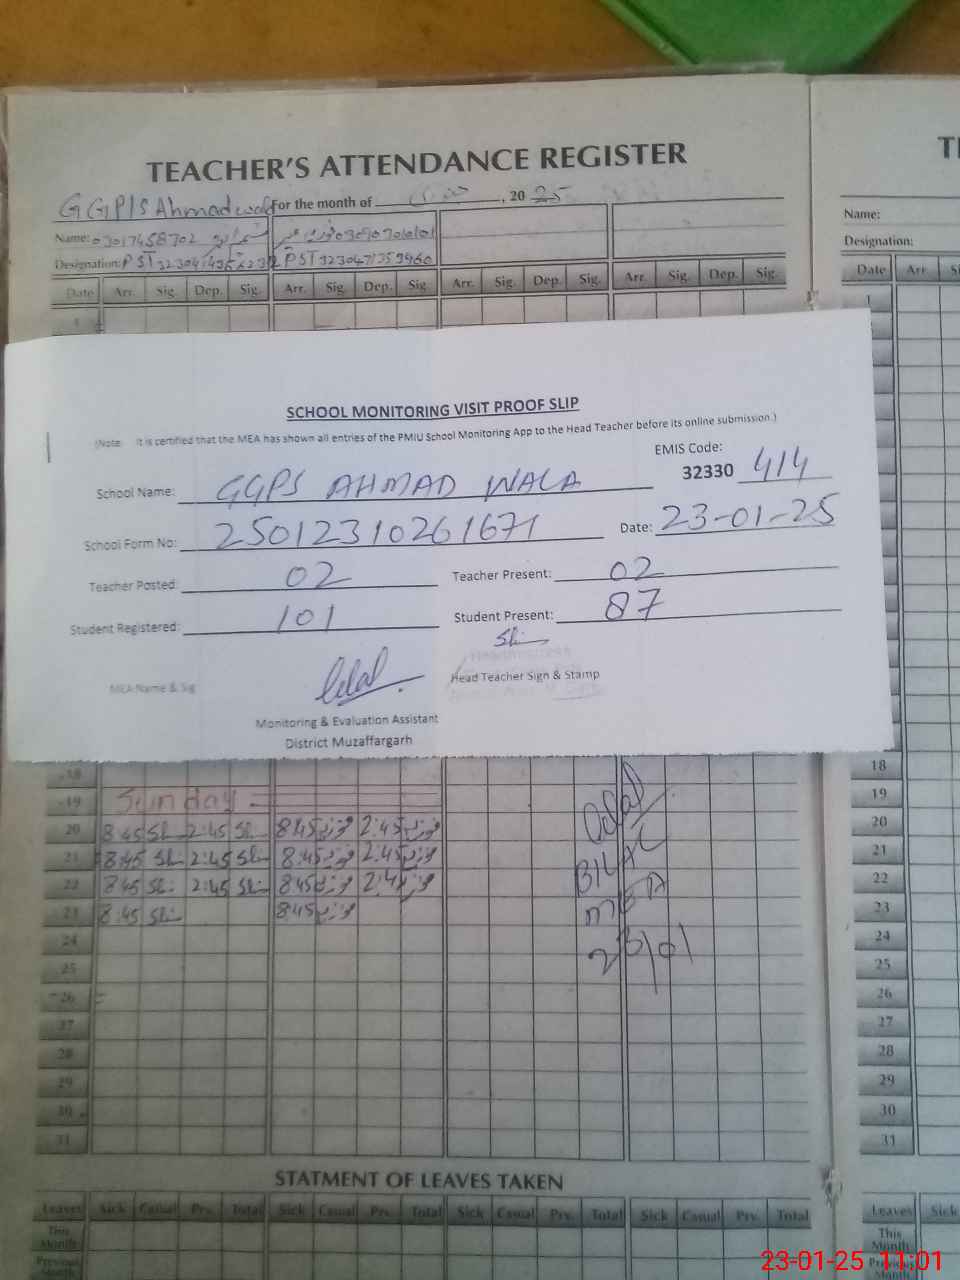 TEACHER'S ATTENDANCE REGISTER
GGP/S Ahmadwala For the month of جنوری, 2025
Name: 03017458702
Designation: PST PST
Date Arr. Sig. Dep. Sig. Arr. Sig. Dep. Sig. Arr. Sig. Dep. Sig. Arr. Sig. Dep. Sig.
1
Name:
Designation:
Date Arr
1
SCHOOL MONITORING VISIT PROOF SLIP
(Note: It is certified that the MEA has shown all entries of the PMIU School Monitoring App to the Head Teacher before its online submission.)
EMIS Code:
School Name: GGPS AHMAD WALA 32330 414
School Form No: 25012310261671 Date: 23-01-25
Teacher Posted: 02 Teacher Present: 02
Student Registered: 101 Student Present: 87
MEA Name & Sig
Head Teacher Sign & Stamp
Monitoring & Evaluation Assistant
District Muzaffargarh
18
19 Sunday
20 8:45 2:45 8:45 فوزیہ 2:45 فوزیہ
21 8:45 2:45 8:45 فوزیہ 2:45 فوزیہ
22 8:45 2:45 8:45 فوزیہ 2:45 فوزیہ
23 8:45 8:45 فوزیہ
BILAL
MEA
23/01
24
25
26
27
28
29
30
31
18
19
20
21
22
23
24
25
26
27
28
29
30
31
STATMENT OF LEAVES TAKEN
Leaves Sick Casual Prv. Total Sick Casual Prv. Total Sick Casual Prv. Total Sick Casual Prv. Total
This Month
Previous Month
Leaves Sick
This Month
Previous Month
23-01-25 11:01